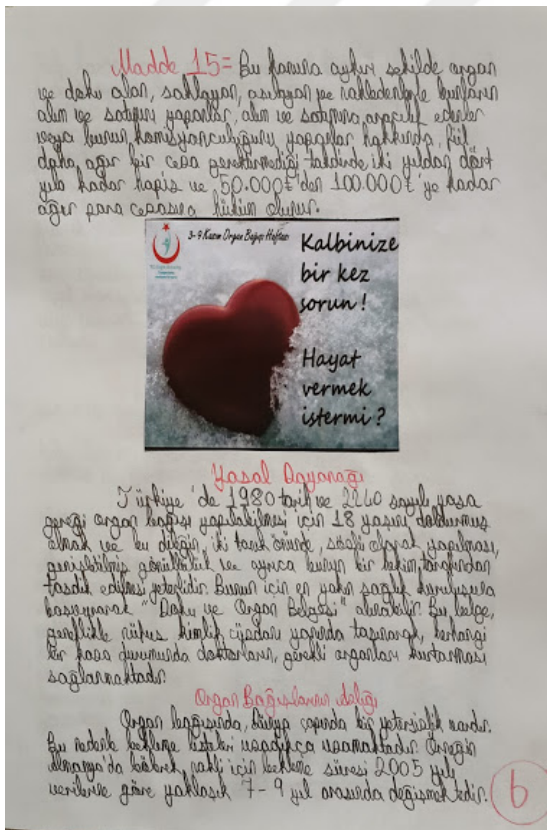 Madde 15= Bu kanuna aykırı şekilde organ
ve doku alan, saklayan, aşılayan ve nakledenlerle bunların
alım ve satımını yapanlar, alım ve satımına aracılık edenler
veya bunun komisyonculuğunu yapanlar hakkında, fiil
daha ağır bir ceza gerektirmediği takdirde iki yıldan dört
yıla kadar hapis ve 50.000₺'den 100.000₺'ye kadar
ağır para cezasına hüküm olunur.
3-9 Kasım Organ Bağışı Haftası
Kalbinize
bir kez
sorun!
Hayat
vermek
istermi?
Yasal Dayanağı
Türkiye'de 1980 tarih ve 2240 sayılı yasa
gereği organ bağışı yapılabilmesi için 18 yaşını doldurmuş
olmak ve bu dileğin, iki tanık önünde, sözlü olarak yapılması,
gönüllülük ve ayrıca bunun bir hekim tarafından
tasdik edilmesi yeterlidir. Bunun için en yakın sağlık kuruluşuna
başvurarak "Doku ve Organ Belgesi" alınabilir. Bu belge,
özellikle nüfus kimlik cüzdanı yanında taşınarak, herhangi
bir kaza durumunda doktorların, gerekli organları kurtarması
sağlanmaktadır.
Organ Bağışlarının Azlığı
Organ bağışında, dünya çapında bir yetersizlik vardır.
Bu nedenle bekleme listeleri uzadıkça uzamaktadır. Örneğin
Almanya'da böbrek nakli için bekleme süresi 2005 yılı
verilerine göre yaklaşık 7-9 yıl arasında değişmektedir.
6